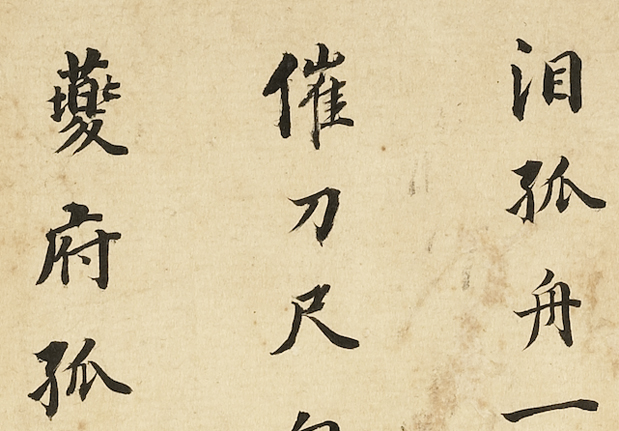 泪孤舟一
催刀尺
夔府孤